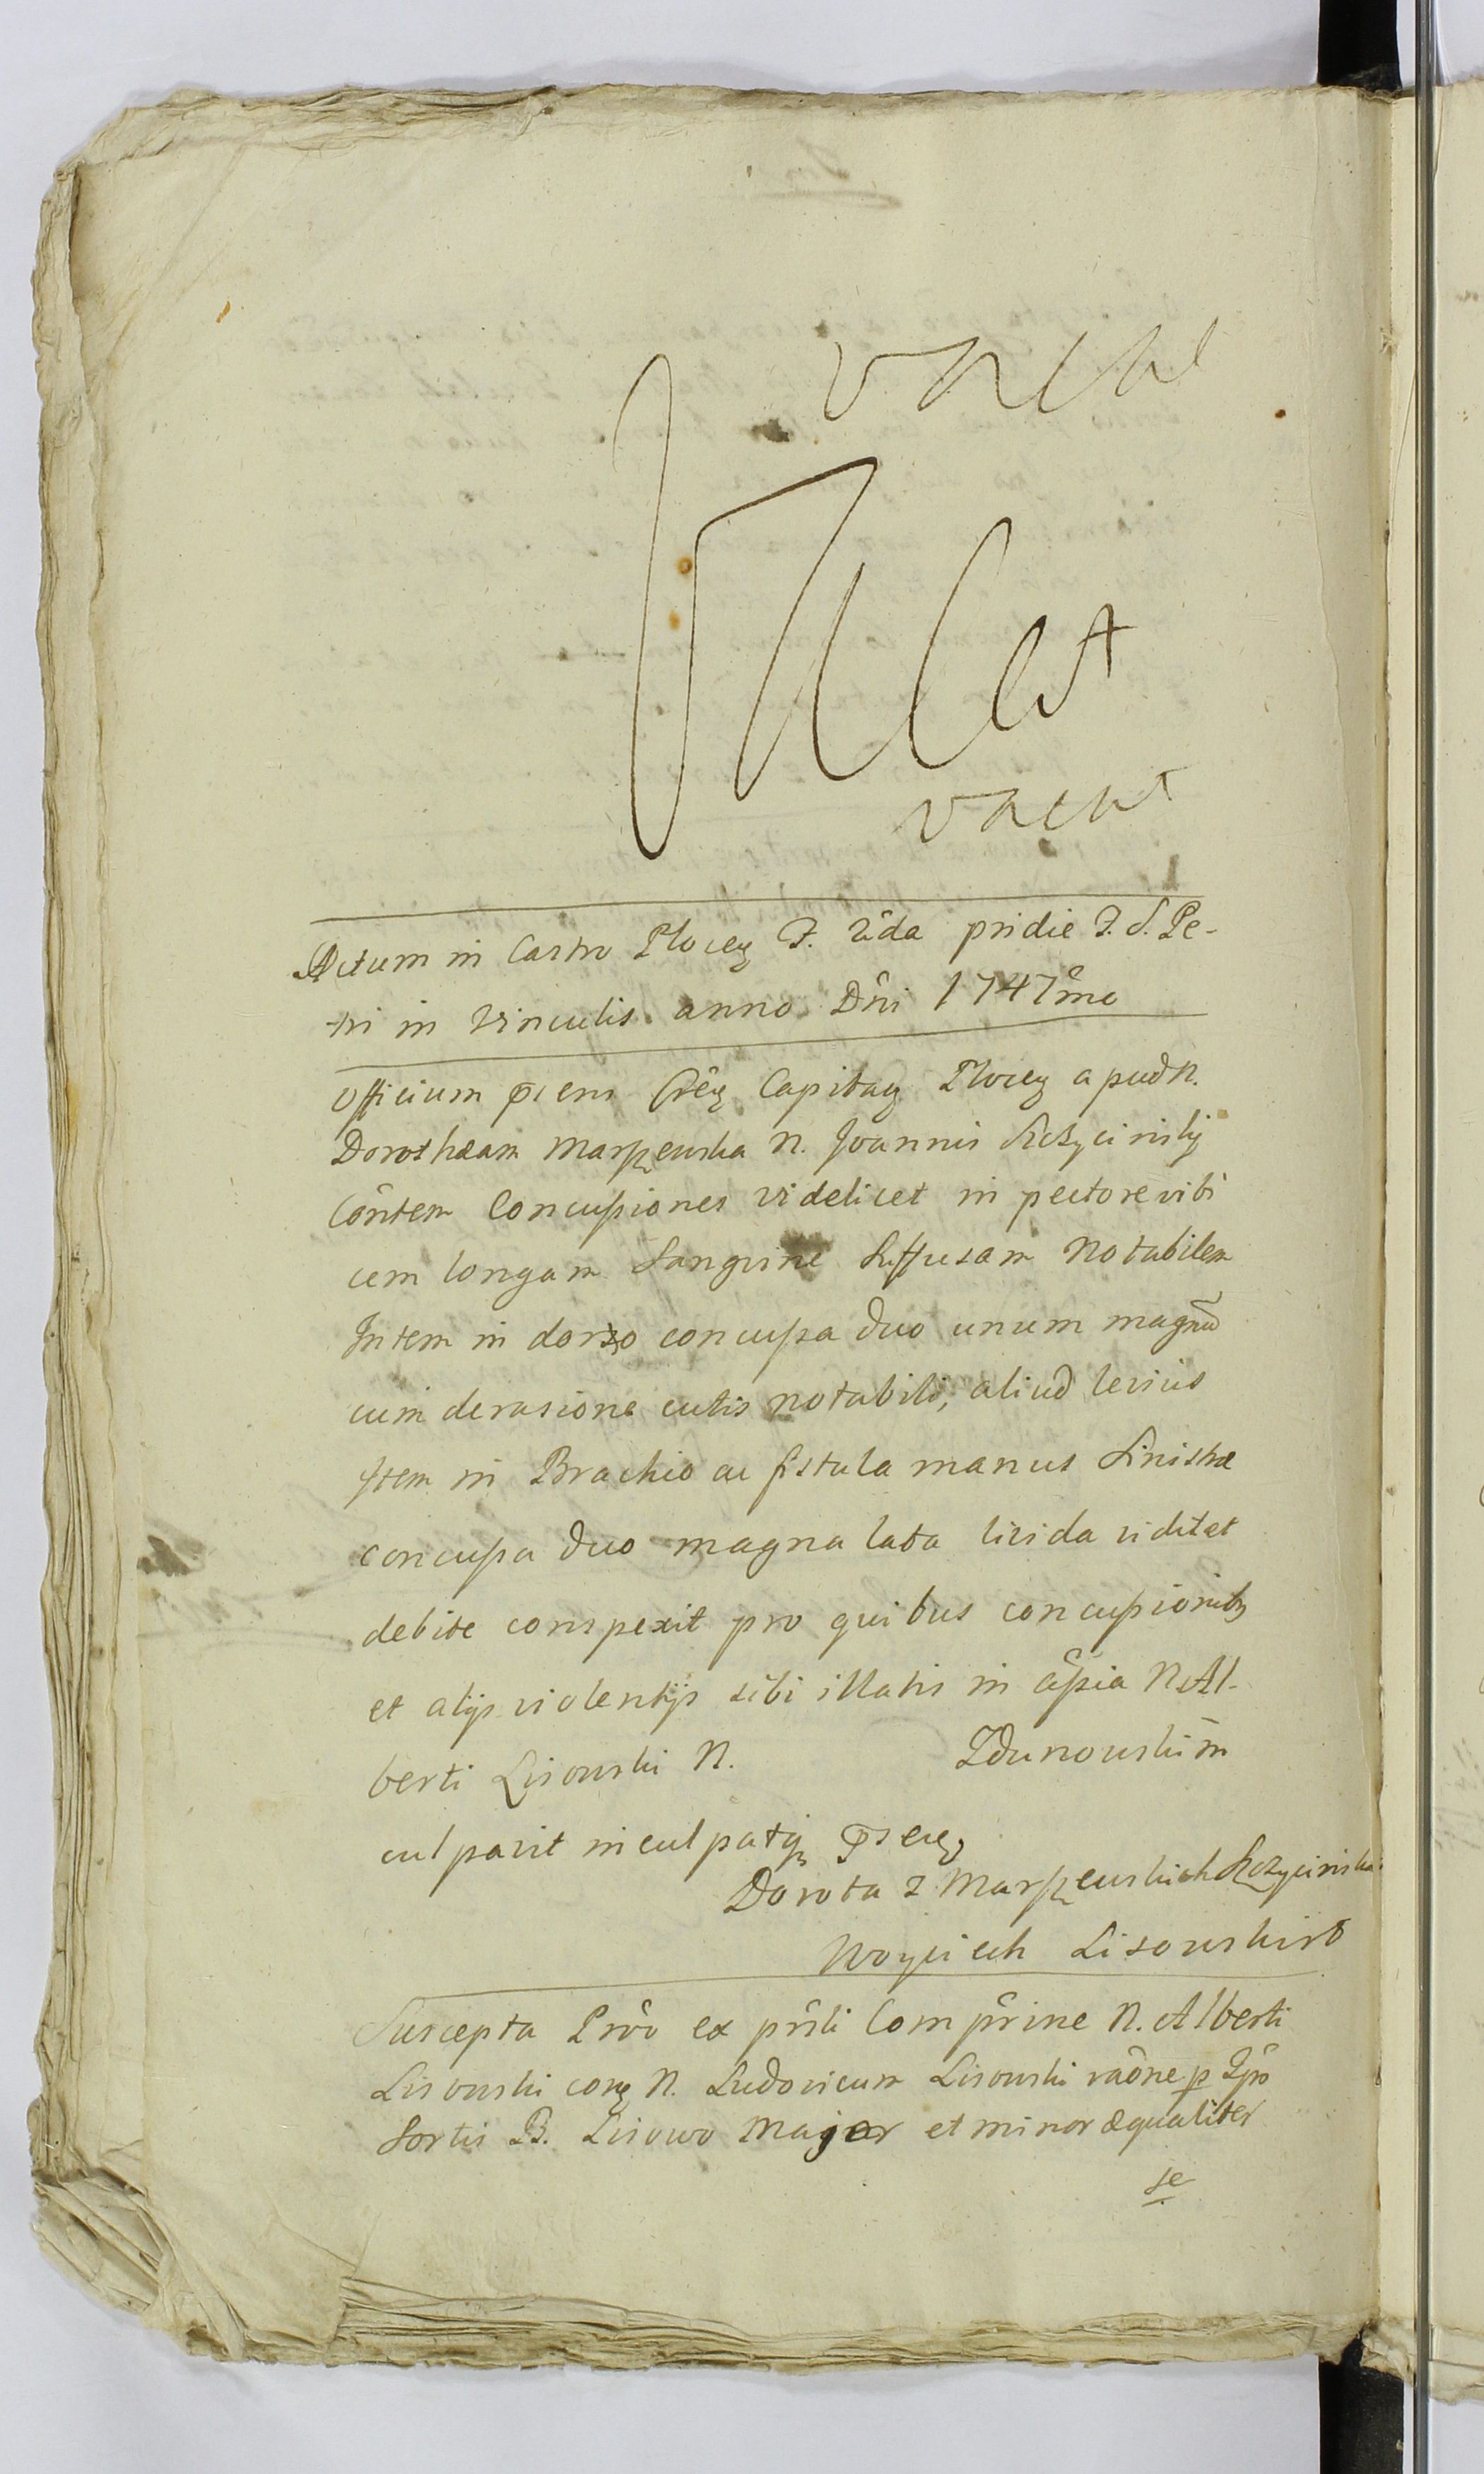 vacat
Vacat
vacat
Actum in Castro Plocen F. 2da pridie F. S. Pe-
tri in Vinculis anno Dni 1747mo
Officium pns Cren Capitan Plocen apud N.
Dorotheam Marszewska N. Joannis
Contem Concussiones videlicet in pectore vibi
cem longam Sanguine Suffusam Notabilem
Intem in dorso concussa duo unum magnu
cum derasione cutis notabili, aliud levius
Item in Brachio ac fistula manus Sinistræ
concussa duo magna lata livida vidit et
debite conspexit pro quibus concussionibus
et alijs violentijs sibi illatis in apsia N. Al-
berti Lisowski N. Zdunowskim
culpavit inculpatq
Dorota z Marszewskich
Woyciech Lisowski
Suscepta Prov ex prsli Comprine N. Alberti
Lisowski con N. Ludovicum Lisowski raone p Ipso
Sortis B. Lisowo Major et minor æqualiter
se